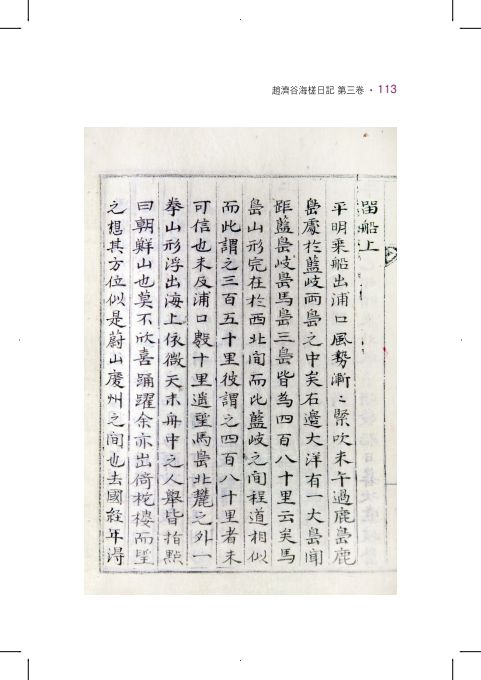 趙濟谷海槎日記 第三卷 • 113
留船上
平明乘船出浦口風勢漸〻緊吹未午過鹿㠀鹿
㠀處於藍岐兩㠀之中矣右邊大洋有一大㠀聞
距藍㠀岐㠀馬㠀三㠀皆爲四百八十里云矣馬
㠀山形完在於西北間而此藍岐之間程道相似
而此謂之三百五十里彼謂之四百八十里者未
可信也未及浦口數十里遙望馬㠀北麓之外一
拳山形浮出海上依微天末舟中之人擧皆指點
曰朝鮮山也莫不欣喜踊躍余亦出倚柁樓而望
之想其方位似是蔚山慶州之間也去國經年淂